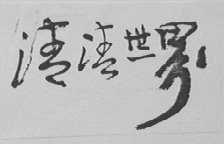 清清世界